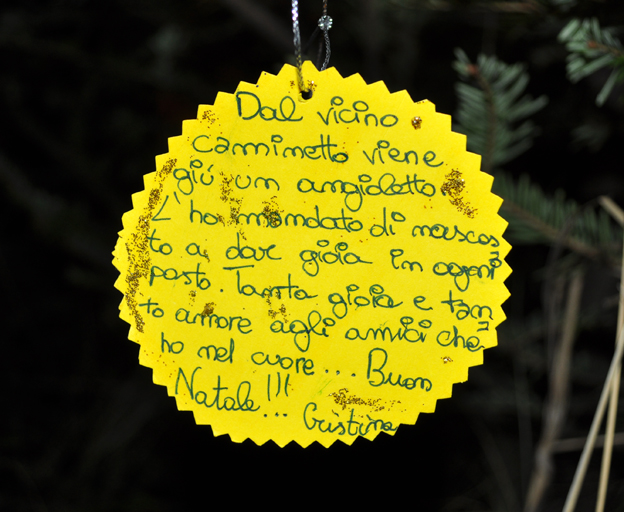 Dal vicino
caminetto viene
giú un angioletto.
L'ho mandato di nascos
to a dare gioia in ogni
posto. Tanta gioia e tan
to amore agli amici che
ho nel cuore... Buon
Natale!!!... Cristina